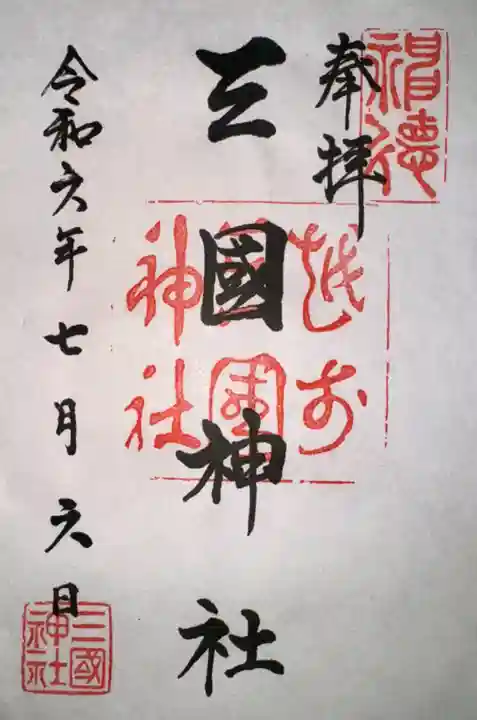 奉拝
三國神社
令和六年七月六日
越前
神社
三國
神社